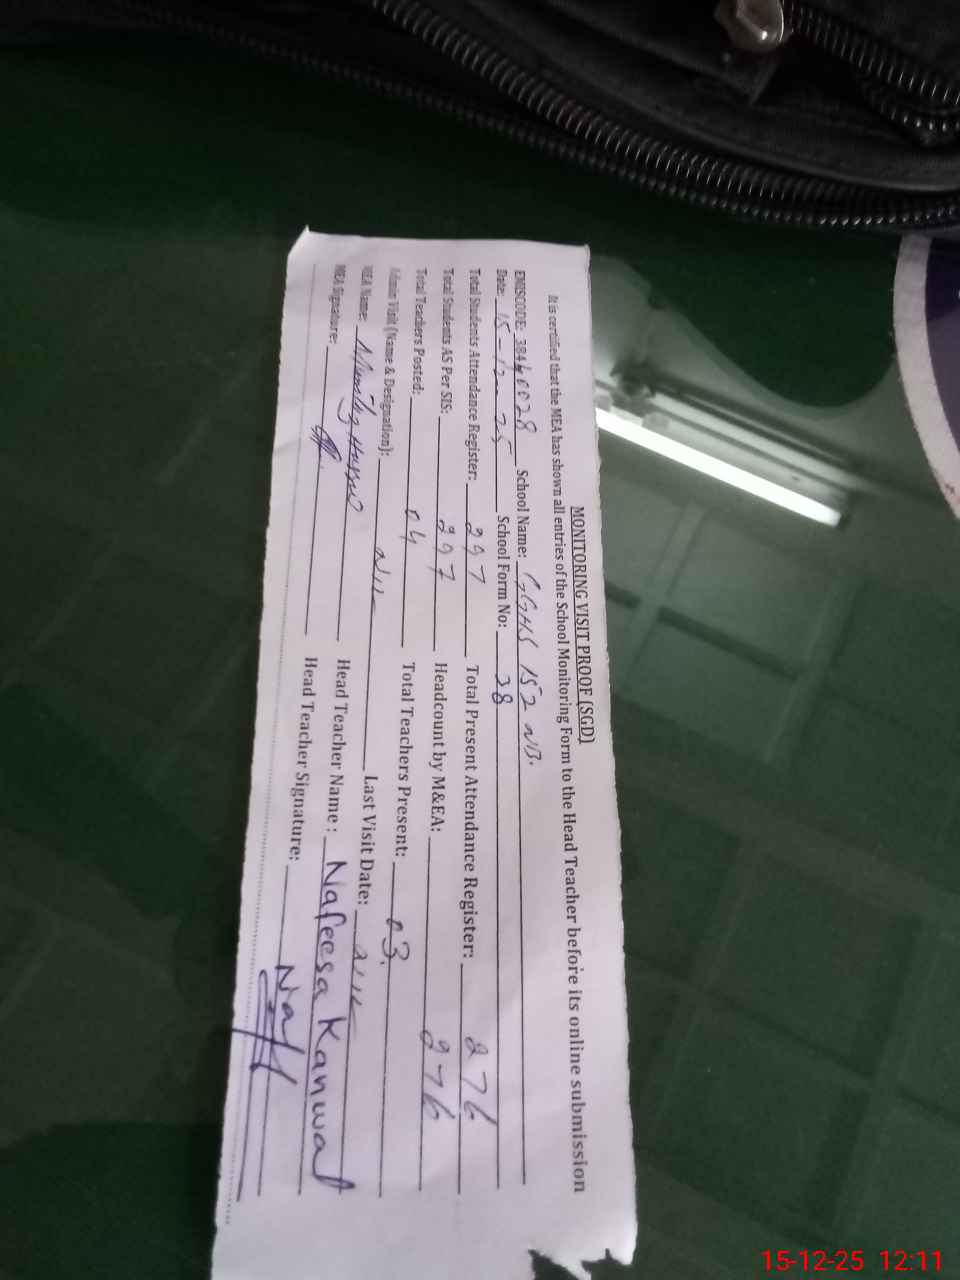 MONITORING VISIT PROOF (SGD)
It is certified that the MEA has shown all entries of the School Monitoring Form to the Head Teacher before its online submission
EMISCODE: 38440028 School Name: GGHS 152 NB.
Date: 15-12-25 School Form No: 38
Total Students Attendance Register: 297 Total Present Attendance Register: 276
Total Students AS Per SIS: 297 Headcount by M&EA: 276
Total Teachers Posted: 04 Total Teachers Present: 03.
Admin Visit (Name & Designation): Nil Last Visit Date: Nil
MEA Name: Hussain Head Teacher Name: Nafeesa Kanwal
MEA Signature: Head Teacher Signature: Naf
15-12-25 12:11